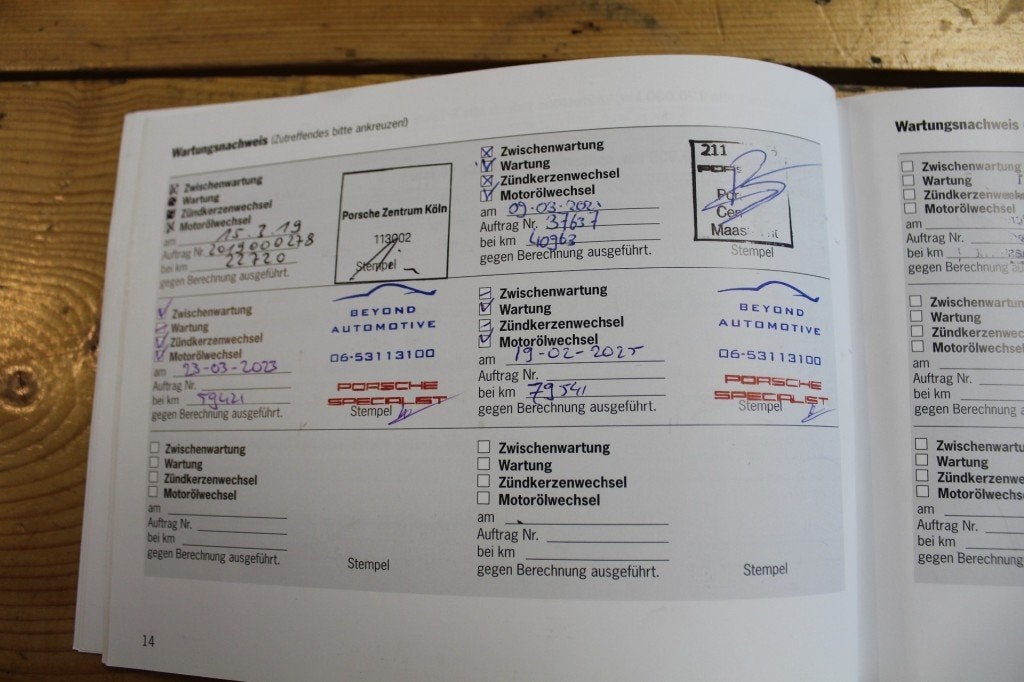 Wartungsnachweis (Zutreffendes bitte ankreuzen!)
Zwischenwartung
Wartung
Zündkerzenwechsel
Motorölwechsel
am 15.3.19
Auftrag Nr. 2019000278
bei km 22720
gegen Berechnung ausgeführt.
Porsche Zentrum Köln
113902
Stempel
Zwischenwartung
Wartung
Zündkerzenwechsel
Motorölwechsel
am 09-03-2021
Auftrag Nr. 37637
bei km 40963
gegen Berechnung ausgeführt.
211
Maas
Stempel
Zwischenwartung
Wartung
Zündkerzenwechsel
Motorölwechsel
am 23-03-2023
Auftrag Nr.
bei km 59421
gegen Berechnung ausgeführt.
BEYOND
AUTOMOTIVE
06-53113100
PORSCHE
SPECIALIST
Stempel
Zwischenwartung
Wartung
Zündkerzenwechsel
Motorölwechsel
am 19-02-2025
Auftrag Nr.
bei km 79541
gegen Berechnung ausgeführt.
BEYOND
AUTOMOTIVE
06-53113100
PORSCHE
SPECIALIST
Stempel
Zwischenwartung
Wartung
Zündkerzenwechsel
Motorölwechsel
am
Auftrag Nr.
bei km
gegen Berechnung ausgeführt.
Stempel
Zwischenwartung
Wartung
Zündkerzenwechsel
Motorölwechsel
am
Auftrag Nr.
bei km
gegen Berechnung ausgeführt.
Stempel
14
Wartungsnachweis
Zwischenwartung
Wartung
Zündkerzenwechse
Motorölwechsel
am
Auftrag Nr.
bei km
gegen Berechnung au
Zwischenwartung
Wartung
Zündkerzenwechs
Motorölwechsel
am
Auftrag Nr.
bei km
gegen Berechnung a
Zwischenwartun
Wartung
Zündkerzenwe
Motorölwechs
am
Auftrag Nr.
bei km
gegen Berechnung